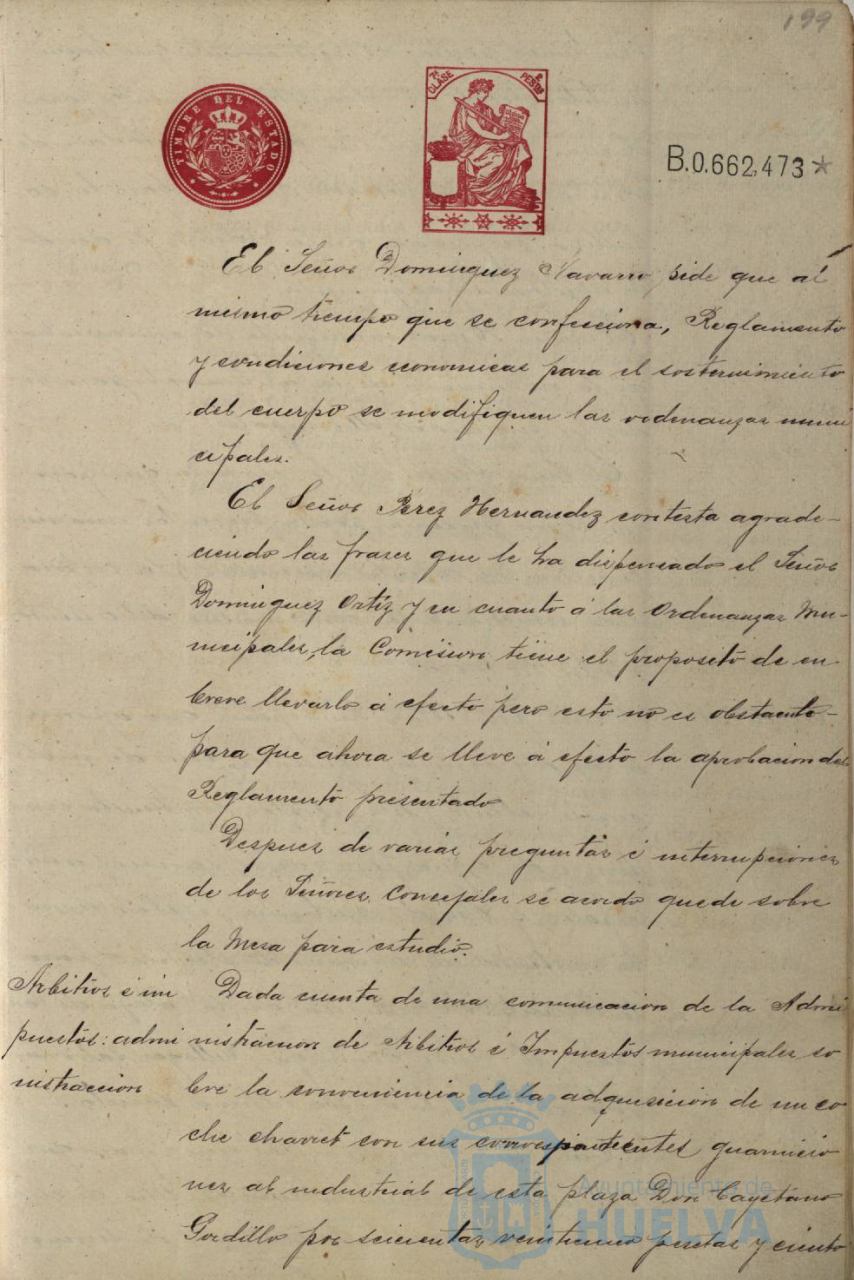 199
TIMBRE DEL ESTADO
7ª CLASE
PESTAS
B.0.662,473*
El Señor Dominguez Navarro pide que al
mismo tiempo que se confecciona, Reglamento
y condiciones economicas para el sostenimiento
del cuerpo se modifiquen las ordenanzas muni
cipales.
El Señor Perez Hernandez contesta agrade-
ciendo las frases que le ha dispensado el Señor
Dominguez Ortiz y en cuanto á las Ordenanzas Mu-
nicipales, la Comision tiene el proposito de en
breve llevarlo á efecto pero esto no es obstaculo
para que ahora se lleve á efecto la aprobacion del
Reglamento presentado
Despues de varias preguntas é interrupciones
de los Señores Concejales se acordo quede sobre
la Mesa para estudio.
Arbitrios é im
puestos: admi
nistracion
Dada cuenta de una comunicacion de la Admi
nistracion de Arbitrios é Impuestos municipales so
bre la conveniencia de la adquisicion de un co
che charret con sus correspondientes guarnicio
nes al industrial de esta plaza Don Cayetano
Gordillo por seicientas veinticinco pesetas y ciento
Ayuntamiento de
HUELVA